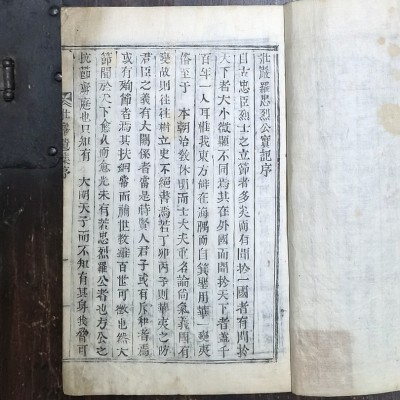 壯巖羅忠烈公實記序
自古忠臣烈士之立節者多矣而有聞扵一國者有聞扵
天下者大小微顯不同焉其在外國而聞扵天下者盖千
百年一人耳惟我東方僻在海隅而自箕聖用華變夷
俗至于 本朝治敎休明而士大夫重名論尙氣義間有
變故則往往樹立史不絕書焉若丁卯丙子則華夷之防
君臣之義有大關係者當是時賢人君子或有斥和者焉
或有殉節者焉其扶綱常而補世敎雖百世可徵也然大
節聞扵天下愈久而愈光未有若忠烈羅公者也方公之
抗節虜庭也只知有 大明天子而不知有其身我 可
壯巖 集序